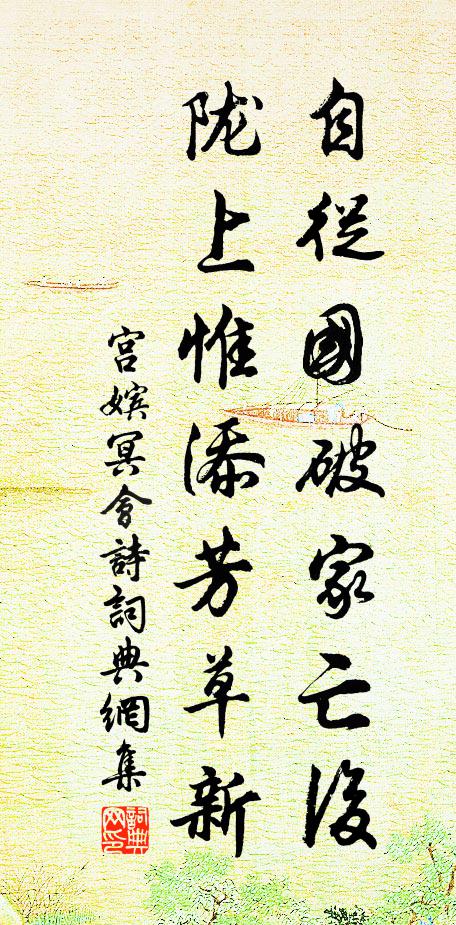 自從國破家亡後
陇上惟添芳草新
宫嬪冥會詩詞典網集
詞典网印